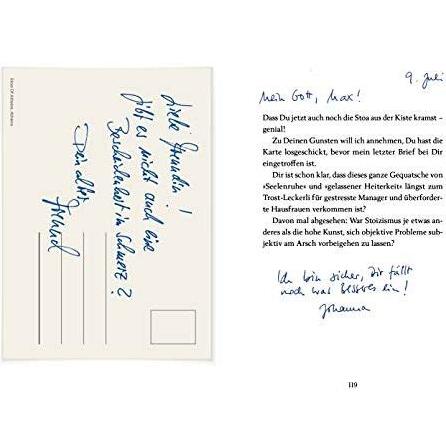 Liebe Freundin!
gibt es nicht auch eine
Bescheidenheit im Schmerz?
Dein alter
Freund
9. Juli
Mein Gott, Max!
Dass Du jetzt auch noch die Stoa aus der Kiste kramst –
genial!
Zu Deinen Gunsten will ich annehmen, Du hast die
Karte losgeschickt, bevor mein letzter Brief bei Dir
eingetroffen ist.
Dir ist schon klar, dass dieses ganze Gequatsche von
»Seelenruhe« und »gelassener Heiterkeit« längst zum
Trost-Leckerli für gestresste Manager und überforder-
te Hausfrauen verkommen ist?
Davon mal abgesehen: War Stoizismus je etwas an-
deres als die hohe Kunst, sich objektive Probleme sub-
jektiv am Arsch vorbeigehen zu lassen?
Ich bin sicher, Dir fällt
noch was Besseres ein!
Johanna
119